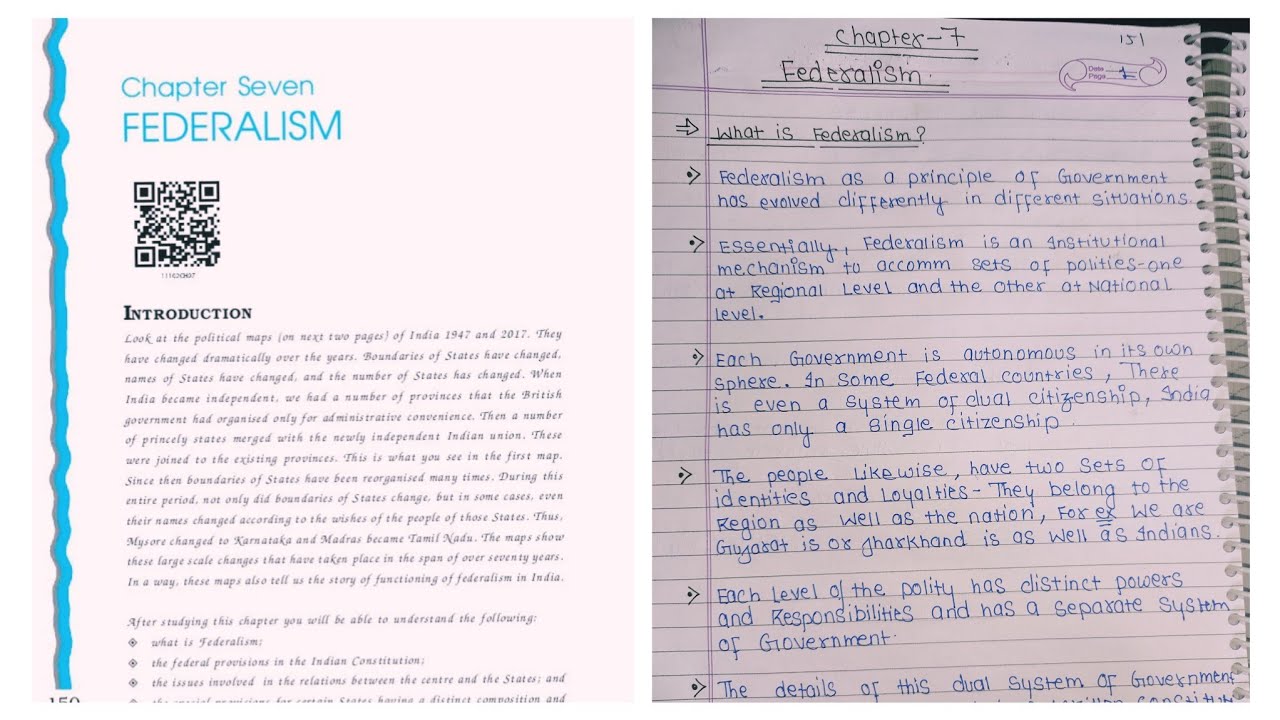 Chapter Seven
FEDERALISM
11162CH07
INTRODUCTION
Look at the political maps (on next two pages) of India 1947 and 2017. They
have changed dramatically over the years. Boundaries of States have changed,
names of States have changed, and the number of States has changed. When
India became independent, we had a number of provinces that the British
government had organised only for administrative convenience. Then a number
of princely states merged with the newly independent Indian union. These
were joined to the existing provinces. This is what you see in the first map.
Since then boundaries of States have been reorganised many times. During this
entire period, not only did boundaries of States change, but in some cases, even
their names changed according to the wishes of the people of those States. Thus,
Mysore changed to Karnataka and Madras became Tamil Nadu. The maps show
these large scale changes that have taken place in the span of over seventy years.
In a way, these maps also tell us the story of functioning of federalism in India.
After studying this chapter you will be able to understand the following:
❖ what is Federalism;
❖ the federal provisions in the Indian Constitution;
❖ the issues involved in the relations between the centre and the States; and
❖ the special provisions for certain States having a distinct composition and
150
Chapter-7
151
Federalism.
Date
Page 1
⇒ What is Federalism?
•> Federalism as a principle of Government
has evolved differently in different situations.
•> Essentially, Federalism is an Institutional
mechanism to accomm sets of polities-one
at Regional Level and the other at National
Level.
•> Each Government is autonomous in its own
sphere. In some Federal countries, There
is even a system of dual citizenship, India
has only a single citizenship.
•> The people Likewise, have two sets of
identities and Loyalties - They belong to the
Region as well as the nation, For ex we are
Gujarat is or Jharkhand is as well as Indians.
•> Each Level of the polity has distinct powers
and Responsibilities and has a separate system
of Government.
•> The details of this dual system of Government